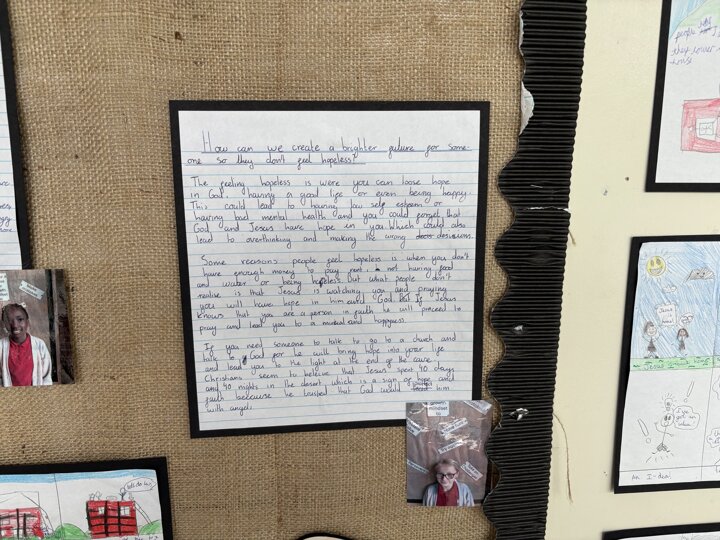 How can we create a brighter future for some-
one so they don't feel hopeless?
The feeling hopeless is were you can loose hope
in God, having a good life or even being happy.
This could lead to having low self esteem or
having bad mental health and you could forget that
God and Jesus have hope in you. Which could also
lead to overthinking and making the wrong desicions.
Some reasons people feel hopeless is when you don't
have enough money to pay rent, not having food
and water or being hopeless. But what people don't
realise is that Jesus is watching you and praying
you will have hope in him and God. But If Jesus
knows that you are a person in faith he will proceed to
pray and lead you to a miracle and happyness.
If you need someone to talk to go to a church and
talk to God for he will bring hope into your life
and lead you to the light at the end of the cave.
Christians seem to believe that Jesus spent 40 days
and 40 nights in the desert which is a sign of hope and
faith because he trusted that God would him
with angels
mindset
to
people
they
house
Jesus
I've
got an
idea!
An I-deal